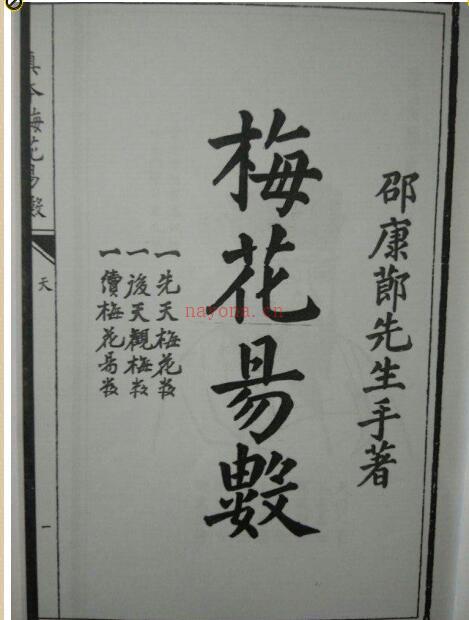 邵康節先生手著
梅花易數
一先天梅花数
一後天觀梅数
一續梅花易数
真本梅花易數
天
一
nayona.cn